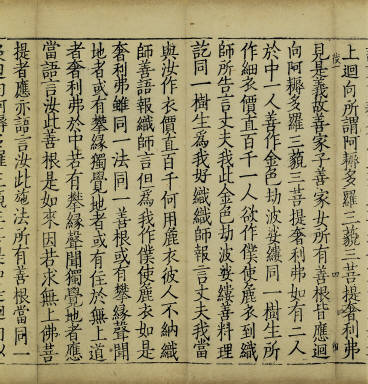 上迴向所謂阿耨多羅三藐三菩提奢利弗
見是義故善家子善家女所有善根皆應迴
向阿耨多羅三藐三菩提奢利弗如有二人
於中一人善作金色劫波娑縷同一樹生所
作細衣價直百千一人欲作僕使麁衣到織
師所告言丈夫我此金色劫波娑縷善料理
訖同一樹生為我好織織師報言丈夫我當
與汝作衣價直百千何用麁衣彼人不納織
師善語報織師言但為我作僕使麁衣如是
奢利弗雖同一法同一善根或有攀緣聲聞
地者或有攀緣獨覺地者或有住於無上道
者奢利弗於中若有攀緣聲聞獨覺地者應
當語言汝此善根是如來因若求無上佛菩
提者應亦語言汝此施法所有善根當同一